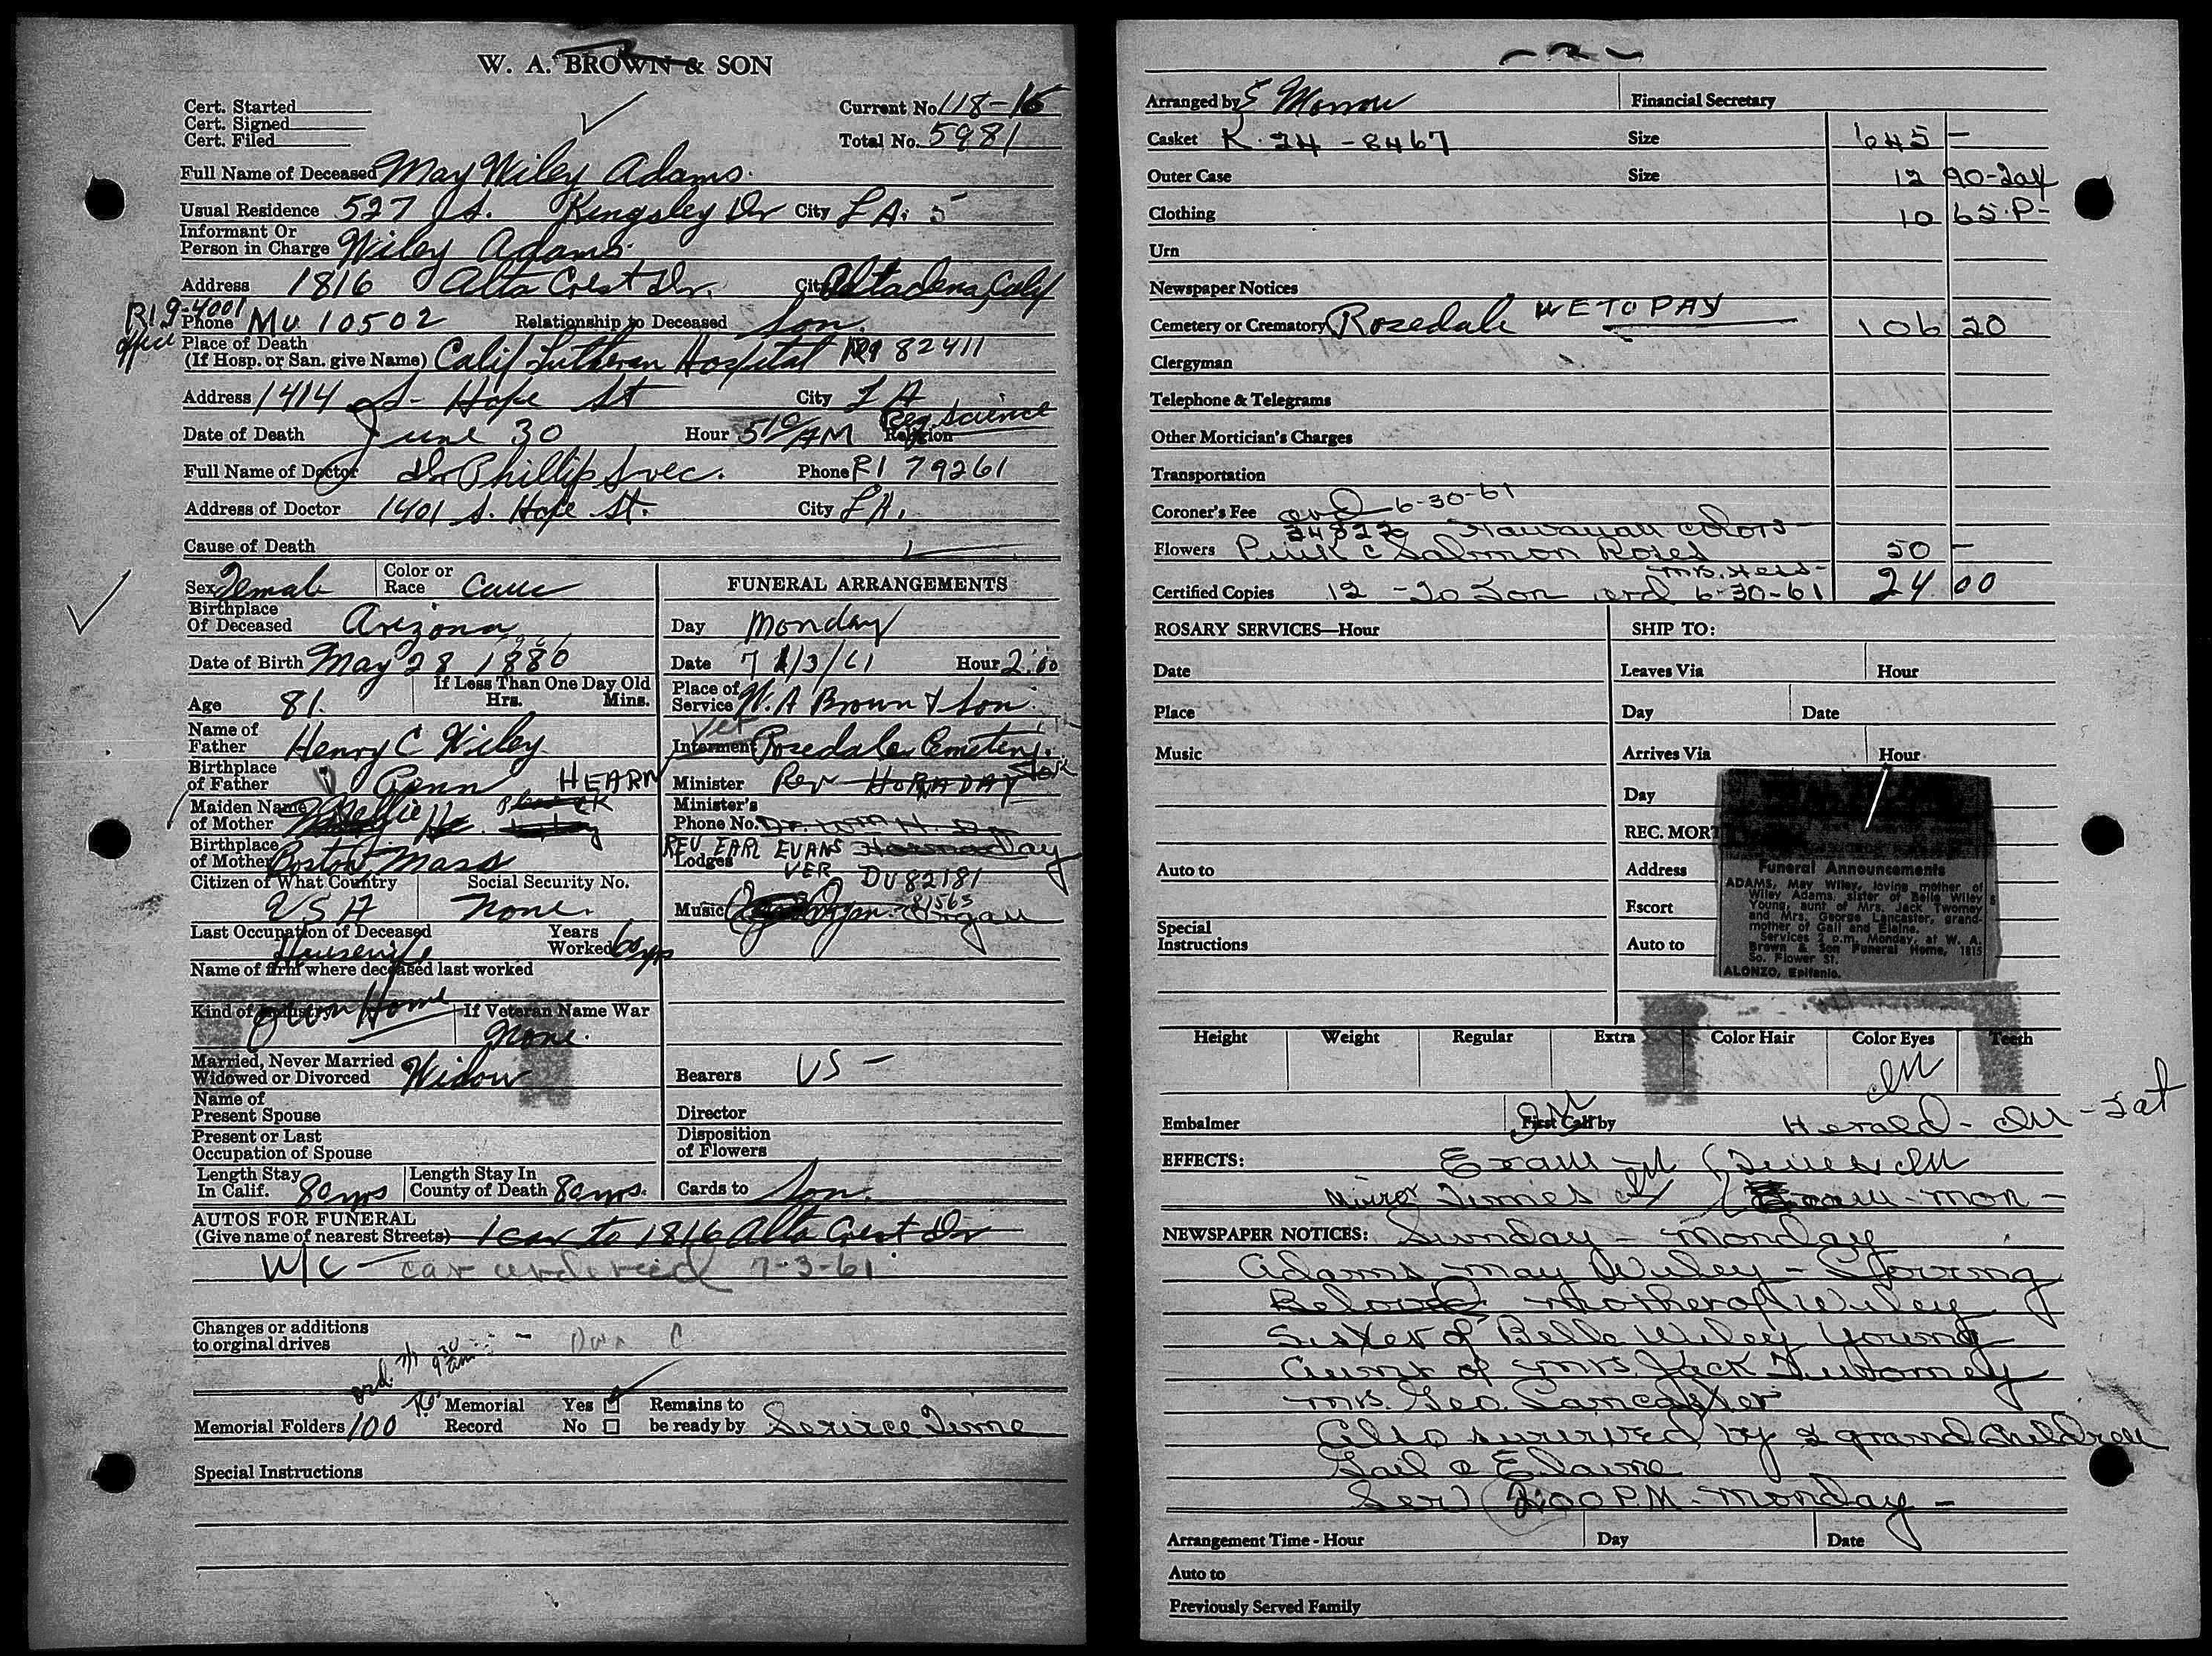 W. A. BROWN & SON
Cert. Started
Cert. Signed
Cert. Filed
Current No. 118-16
Total No. 5981
Full Name of Deceased May Wiley Adams.
Usual Residence 527 S. Kingsley Dr City L A. 5
Informant Or
Person in Charge Wiley Adams.
Address 1816 Alta Crest Dr. City Altadena, Calif
RI 9-4001
office
Phone MU 10502 Relationship to Deceased Son.
Place of Death
(If Hosp. or San. give Name) Calif Lutheran Hospital RI 82411
Address 1414 S- Hope St City L A
Date of Death June 30 Hour 5 10/AM Religion Reg. Science
Full Name of Doctor Dr Phillip Svec. Phone RI 79261
Address of Doctor 1401 S. Hope St. City L A.
Cause of Death
Sex Female Color or Race Cauc
Birthplace
Of Deceased Arizona
Date of Birth May 28 1880
Age 81. If Less Than One Day Old
Hrs. Mins.
Name of
Father Henry C Wiley
Birthplace
of Father Penn
HEARN
Maiden Name
of Mother Nellie
Birthplace
of Mother Boston Mass
Citizen of What Country Social Security No.
USA None.
Last Occupation of Deceased Years
Housewife Worked 60 yrs
Name of firm where deceased last worked
Kind of Industry Own Home If Veteran Name War
None.
Married, Never Married
Widowed or Divorced Widow
Name of
Present Spouse
Present or Last
Occupation of Spouse
Length Stay
In Calif. 80 yrs Length Stay In
County of Death 80 yrs.
AUTOS FOR FUNERAL
(Give name of nearest Streets) 1 car to 1816 Alta Crest Dr
W/C - car ordered 7-3-61
Changes or additions
to orginal drives
ord. 7/1 9 30 am
Memorial Folders 100 Memorial
Record Yes No Remains to
be ready by Service Time
Special Instructions
FUNERAL ARRANGEMENTS
Day Monday
Date 7/3/61 Hour 2:00
Place of
Service W. A Brown & Son.
Interment Rosedale Cemetery.
Minister Rev HORNADAY
Minister's
Phone No. Dr. Wm H.
REV EARL EVANS Hornaday
Lodges
VER DU82181
81565
Music Organ
Bearers US -
Director
Disposition
of Flowers
Cards to Son.
- 2 -
Arranged by S Morrow Financial Secretary
Casket K-24-8467 Size 645 -
Outer Case Size 12 90-2ax
Clothing 10 65.P-
Urn
Newspaper Notices
Cemetery or Crematory Rosedale WE TO PAY 106 20
Clergyman
Telephone & Telegrams
Other Mortician's Charges
Transportation
Coroner's Fee ord 6-30-61
Hawaiian colors
Flowers Pink & Salmon Roses 50 -
Certified Copies 12 - To Son ord 6-30-61 24 00
ROSARY SERVICES—Hour
Date
Place
Music
Auto to
Special
Instructions
SHIP TO:
Leaves Via Hour
Day Date
Arrives Via Hour
Day
REC. MORT
Address
Escort
Auto to
Funeral Announcements
ADAMS, May Wiley, loving mother of
Wiley Adams, sister of Belle Wiley
Young, aunt of Mrs. Jack Twomey
and Mrs. George Lancaster, grand-
mother of Gail and Elaine.
Services 2 p.m. Monday, at W. A.
Brown & Son Funeral Home, 1815
So. Flower St.
ALONZO, Epifanio.
Height Weight Regular Extra Color Hair Color Eyes Teeth
Embalmer First Call by Herald - - Sat
EFFECTS: Exam Times
Mirror Times Exam - Mon -
NEWSPAPER NOTICES: Sunday - Monday
Adams May Wiley - Loving
Beloved Mother of Wiley
Sister of Belle Wiley Young
Aunt of Mrs. Jack Twomey
Mrs. Geo. Lancaster
Also survived by 2 grandchildren
Gail & Elaine
Ser) 2:00 P.M. Monday -
Arrangement Time - Hour Day Date
Auto to
Previously Served Family